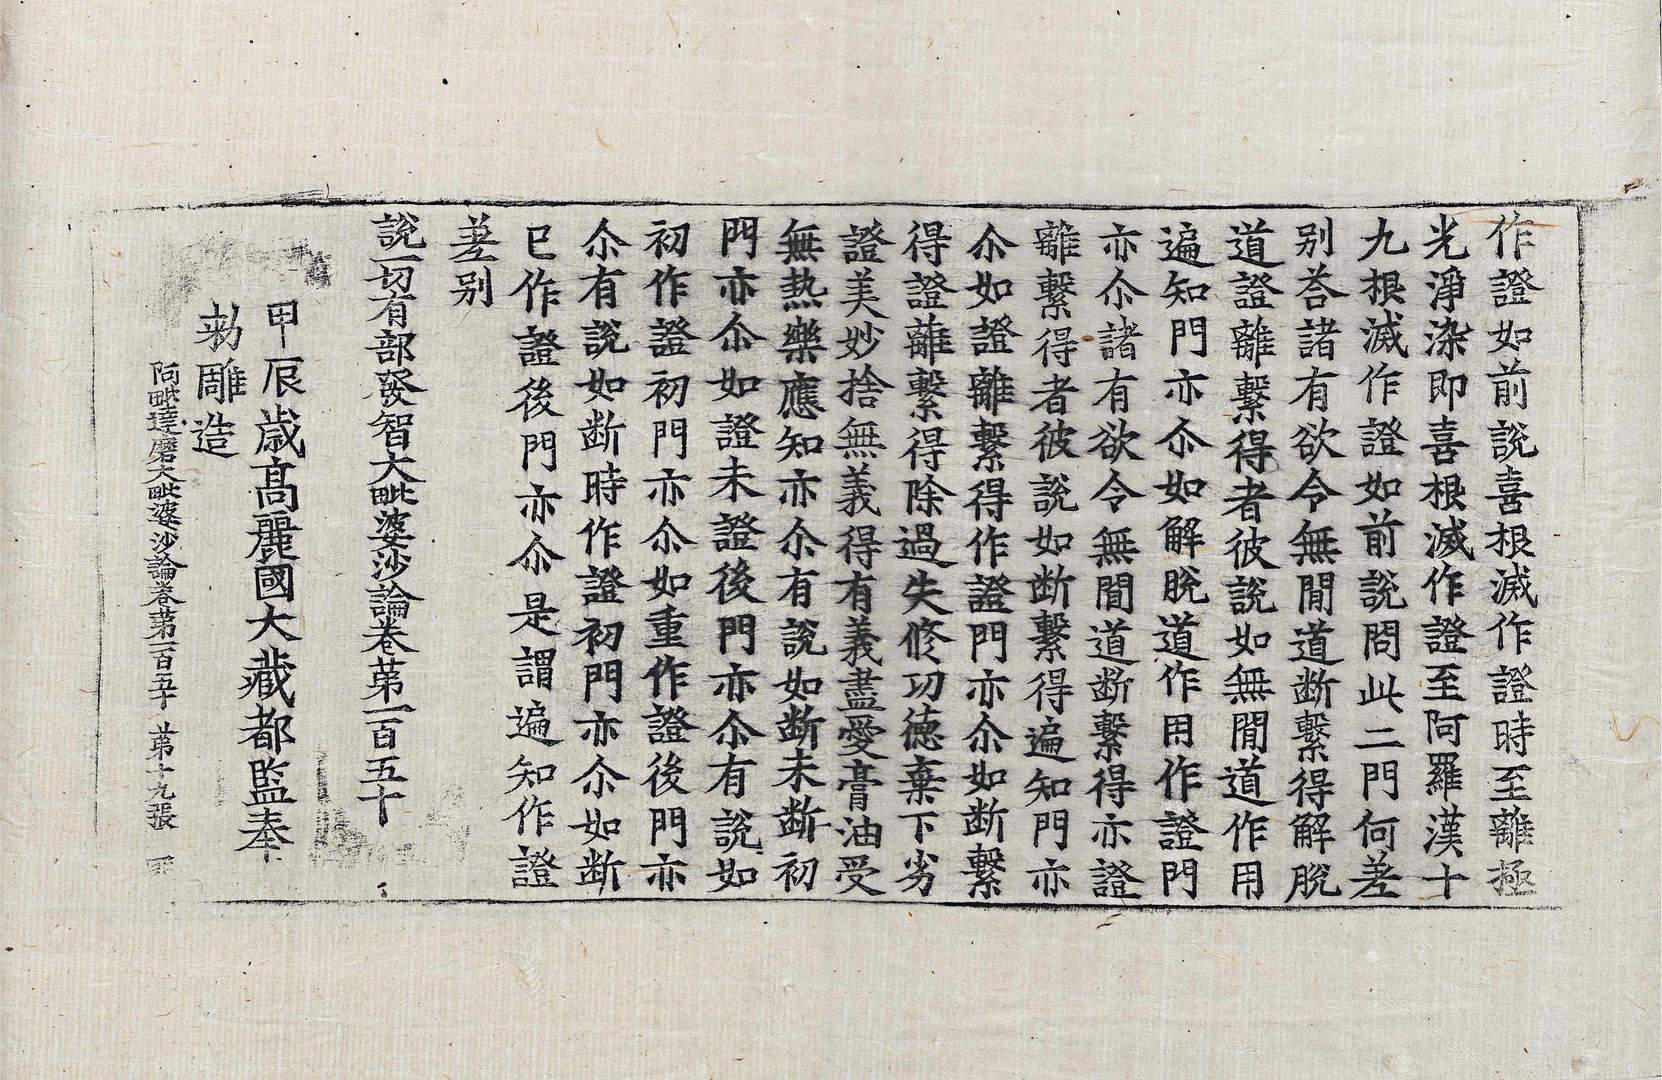 作證如前說喜根滅作證時至離極
光淨染即喜根滅作證至阿羅漢十
九根滅作證如前說問此二門何差
别荅諸有欲令無閒道断繫得解脫
道證離繫得者彼說如無閒道作用
遍知門亦尒如解脫道作用作證門
亦尒諸有欲令無閒道断繫得亦證
離繫得者彼說如断繫得遍知門亦
尒如證離繫得作證門亦尒如断繫
得證離繫得除過失修功德棄下劣
證美妙捨無義得有義盡愛膏油受
無熱樂應知亦尒有說如断未断初
門亦尒如證未證後門亦尒有說如
初作證初門亦尒如重作證後門亦
尒有說如断時作證初門亦尒如断
已作證後門亦尒是謂遍知作證
差别
說一切有部發智大毗婆沙論卷苐一百五十
甲辰歲髙麗國大藏都監奉
勑雕造
阿毗達磨大毗婆沙論卷苐一百五十 苐十九張